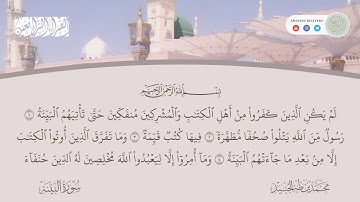 AMAZING RECITERS
بِسْمِ اللَّهِ الرَّحْمَٰنِ الرَّحِيمِ
لَمْ يَكُنِ الَّذِينَ كَفَرُوا۟ مِنْ أَهْلِ الْكِتَٰبِ وَالْمُشْرِكِينَ مُنفَكِّينَ حَتَّىٰ تَأْتِيَهُمُ الْبَيِّنَةُ ١
رَسُولٌ مِّنَ اللَّهِ يَتْلُوا۟ صُحُفًا مُّطَهَّرَةً ٢ فِيهَا كُتُبٌ قَيِّمَةٌ ٣ وَمَا تَفَرَّقَ الَّذِينَ أُوتُوا۟ الْكِتَٰبَ
إِلَّا مِنۢ بَعْدِ مَا جَآءَتْهُمُ الْبَيِّنَةُ ٤ وَمَآ أُمِرُوٓا۟ إِلَّا لِيَعْبُدُوا۟ اللَّهَ مُخْلِصِينَ لَهُ الدِّينَ حُنَفَآءَ
سُورَةُ البَيِّنَة